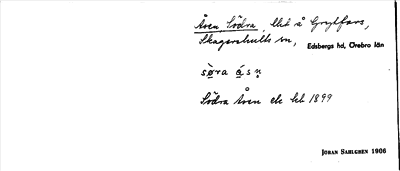 Åsen, Södra, lht å Grytfors,
Skagershults sn, Edsbergs hd, Örebro län
sø̀ra á̱sn̥
Södra Åsen ek bl 1899
JÖRAN SAHLGREN 1906